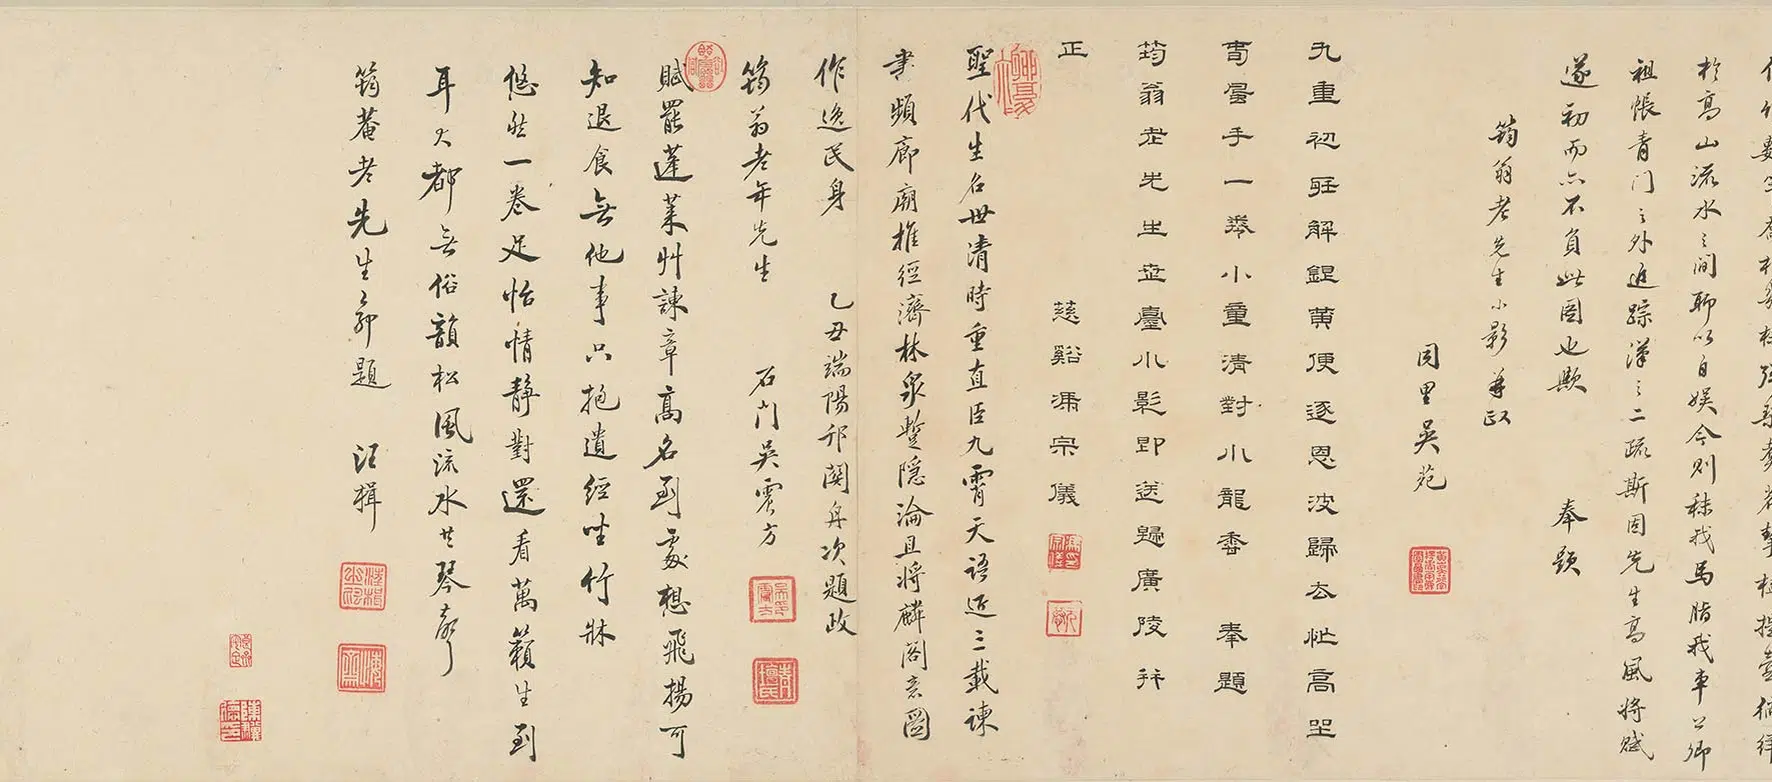 於高山流水之间聊以自娱今则秣我马脂我車公卿
祖帳青门之外追踪漢之二疏斯图先生高風将赋
遂初而亦不負此图也歟　奉題
筠翁老先生小影並政
同里吳苑
九重初許解銀黄便逐恩波歸去忙高坐
看雲手一卷小童清對小龍香　奉題
筠翁老先生並臺小影即送歸廣陵并
正　慈谿馮宗儀
聖代生名世清時重直臣九霄天语近三載諫
書頻廊廟推經濟林泉暫隐淪且将麟阁意图
作逸民身　乙丑端陽邗關舟次題政
筠翁老年先生　石门吳雯方
賦罷蓬萊艸諫章高名到處想飛揚可
知退食無他事只抱遺經坐竹牀
悠然一卷足怡情静對還看萬籟生到
耳大都無俗韻松風流水共琴聲
筠菴老先生命題　汪楫